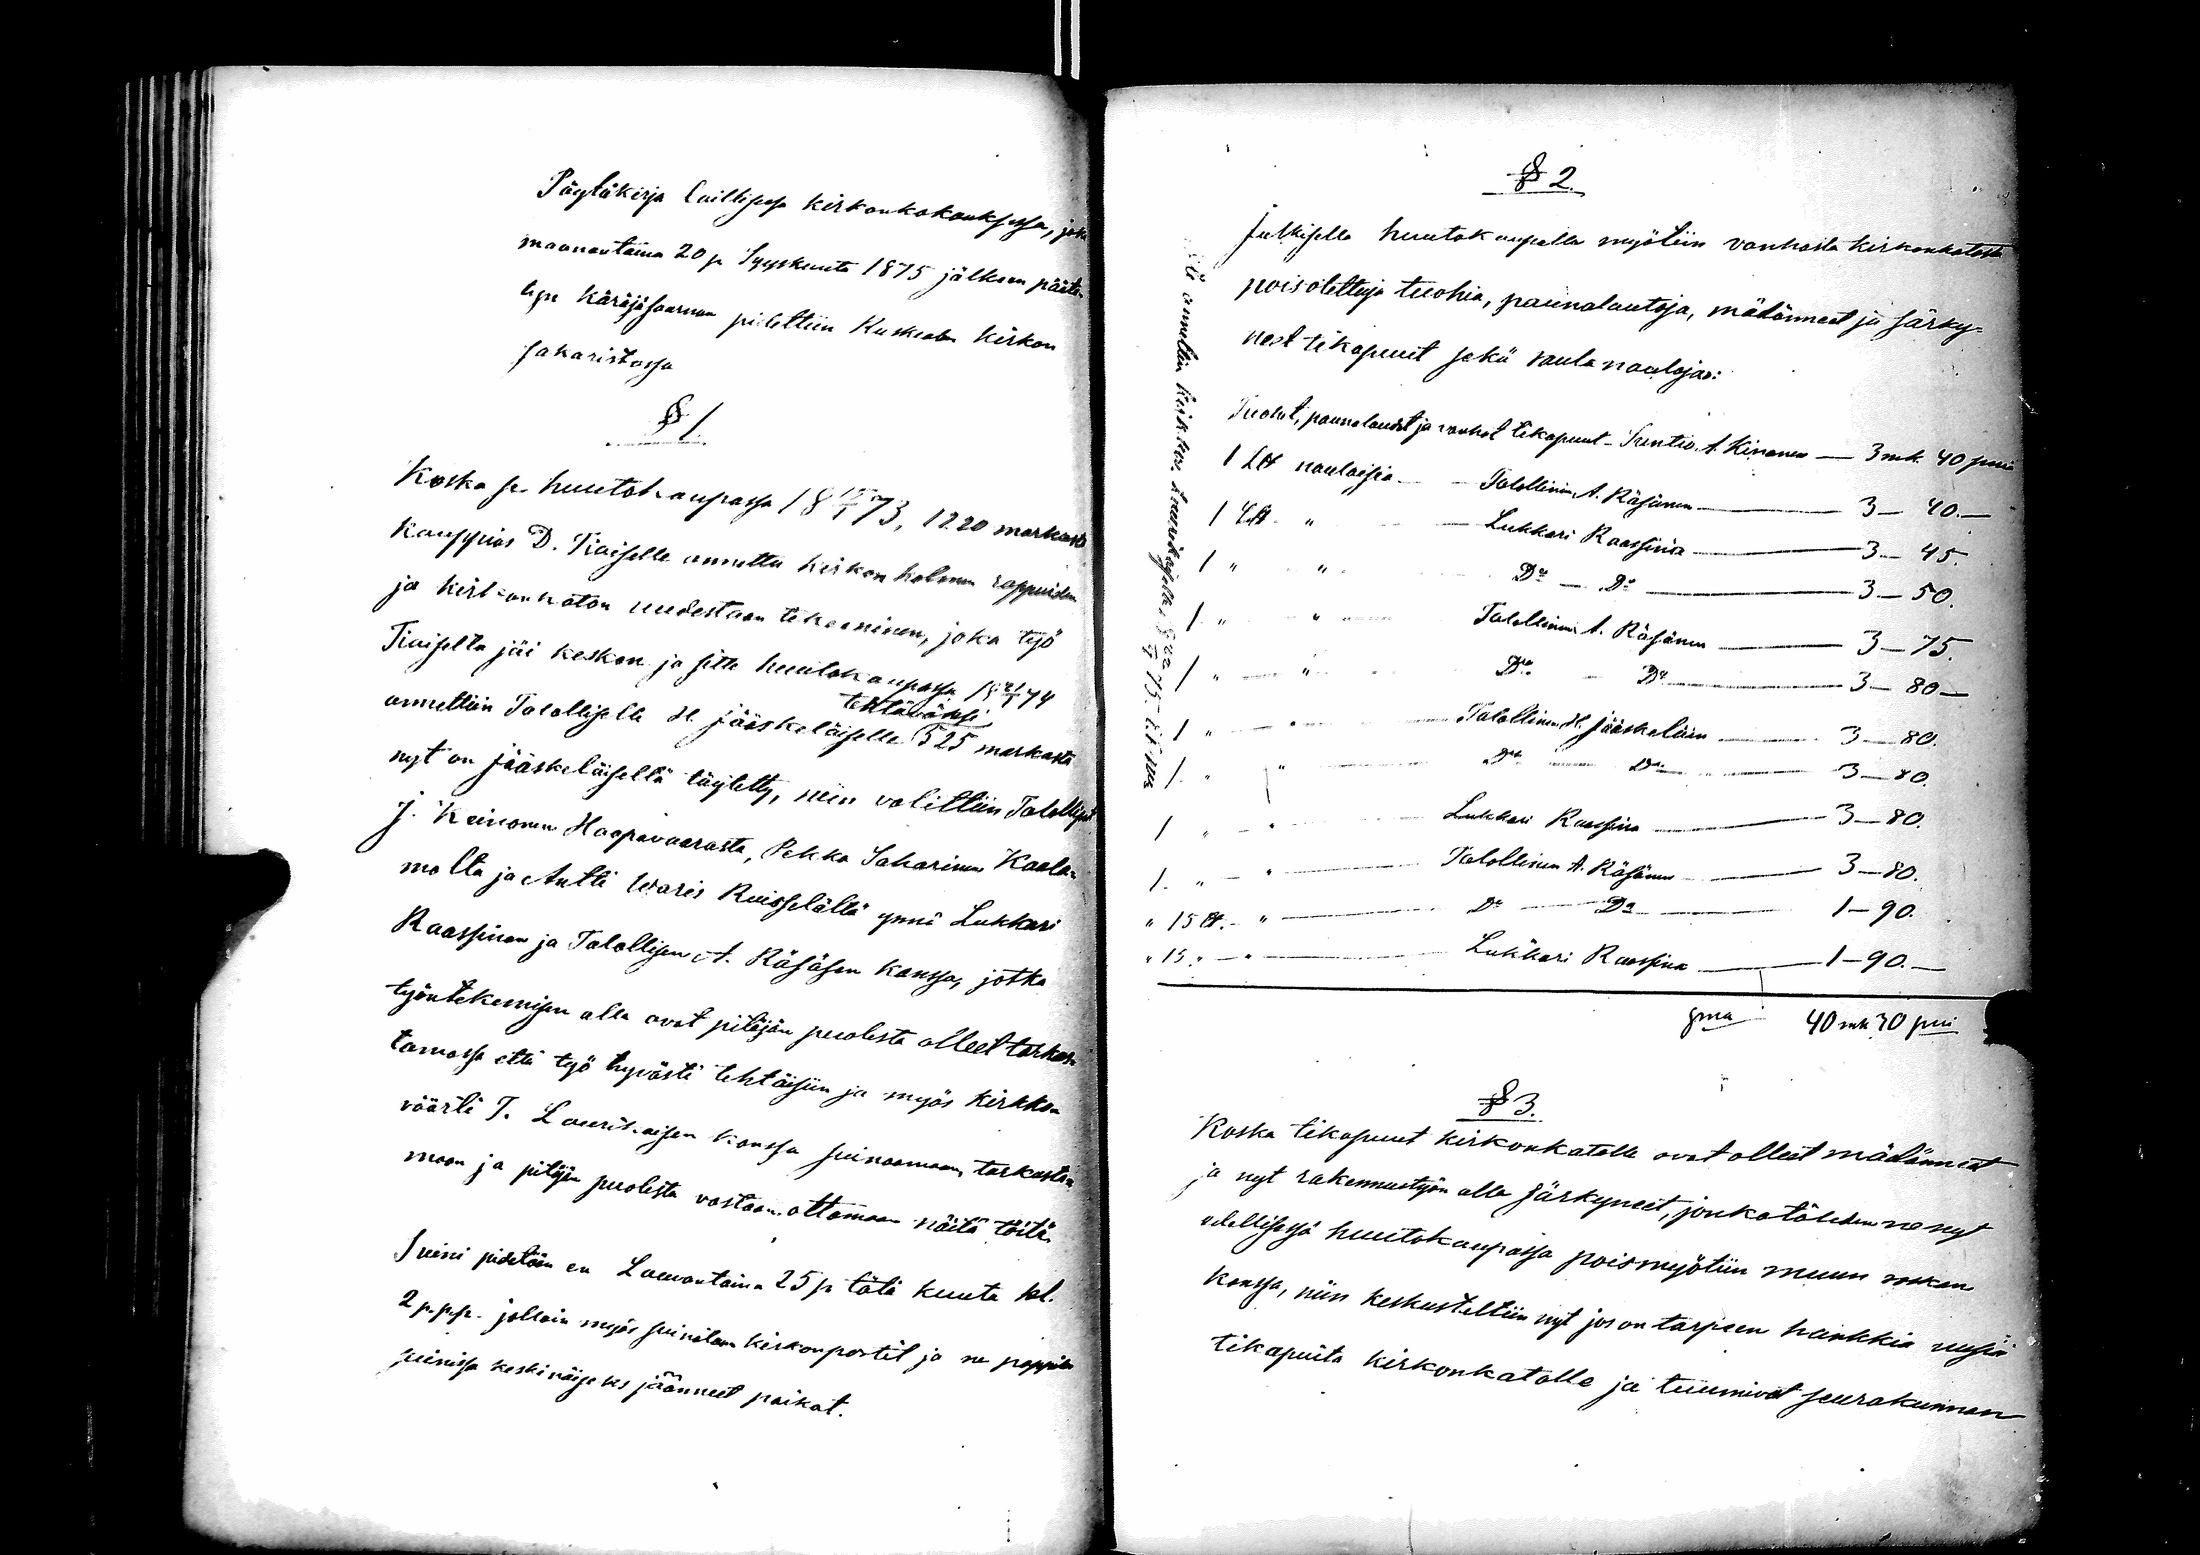 Pöytäkirja laillisessa kirkonkokouksessa, joka
maanantaina 20 p Syyskuuta 1875 jälkeen päätet-
tyn käräjäsaarnan pidettiin Ruskealan kirkon
sakaristossa
§ 1
Koska se huutokaupassa 1873, 1220 markasta
kauppias D. Tiaiselle annettu kirkon holmen rappuiden
ja kirkonkaton uudestaan tekeminen, joka työ
Tiaiselta jäi kesken ja sitte huutokaupassa 18 21/1 74
annettiin Talolliselle H Jääskeläiselle tehtäväksi 525 markasta
nyt on Jääskeläiseltä täytetty, niin valittiin Talolliset
J. Keinonen Haapavaarasta, Pekka Sakarinen Kaala-
molta ja Antti Waris Ruisselältä ynnä Lukkari
Raassinan ja Talollisen A. Räsäsen kanssa, jotka
työntekemisen alla ovat pitäjän puolesta olleet tarkas-
tamassa että työ hyvästi tehtäisiin ja myös kirkkon
väärti T. Laurikaisen kanssa sinaamaan, tarkasta-
maan ja pitäjän puolesta vastaan ottamaan näitä töitä.
Siini pidetään en Lauvantaina 25 p tätä kuuta kl.
2 p.p.p. jolloin myös sinätään kirkonportit ja ne pappilan
sinissä keskinäiseks jäänneet paikat.
§ 2.
Julkisella huutokaupalla myötiin vanhasta kirkonkatosta
poisotettuja tuohia, paunalautoja, mädänneet ja särky-
neet tikapuut sekä rautanauloja:
Tuohet, paunalaudat ja vanhat tikapuut - Suntio A. Kinanen — 3 mk. 40 pniä
1 L℔ nauloisia — Talollinen A. Räsänen — 3 — 40. —
1 L℔ " — Lukkari Raassina — 3 — 45.
1 " " Do — Do — 3 — 50.
1 " " Talollinen A. Räsänen — 3 — 75.
1 " " Do - Do — 3 — 80 —
1 " " Talollinen H. Jääskeläin — 3 — 80.
1 " " Do Do — 3 — 80.
1 " " Lukkari Raassina — 3 — 80.
1 " " Talollinen A. Räsänen — 3 — 80.
" 15 ℔. " Do — Do — 1 — 90.
" 15 " " Lukkari Raassina — 1 — 90. —
40 mk 70 pni
§ 3.
Koska tikapuut kirkonkatolle ovat olleet mädänneet
ja nyt rakennustyön alla särkyneet, jonkatähden ne nyt
edellisessä huutokaupassa poismyötiin muun roskan
kanssa, niin keskusteltiin nyt jos on tarpeen hankkia uusia
tikapuita kirkonkatolle ja tuumivat seurakunnan